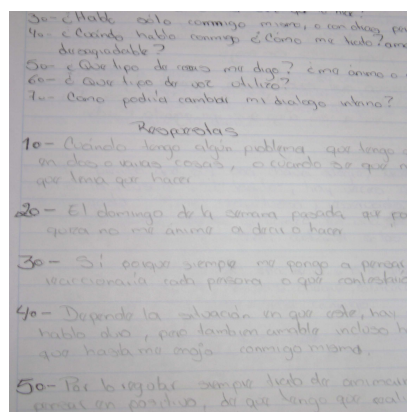 3o- ¿Hablo sólo conmigo mismo, o con
4o- ¿Cuándo hablo conmigo ¿Cómo me hablo?
desagradable?
5o- ¿Que tipo de cosas me digo? ¿me animo o
6o- ¿Que tipo de voz utilizo?
7o- Como podría cambiar mi dialogo interno?
Respuestas
1o- Cuándo tengo algún problema que tengo
en dos o varias cosas, o cuándo se que
que tenia que hacer
2o- El domingo de la semana pasada que
no me anime a decir o hacer
3o- Sí porque siempre me pongo a pensar
reaccionaria cada persona o que
4o- Depende la situación en que este, hay
hablo, pero tambien amable incluso
que hasta me enojo conmigo misma.
5o- Por lo regular siempre trato de
pensar en positivo, de que tengo que